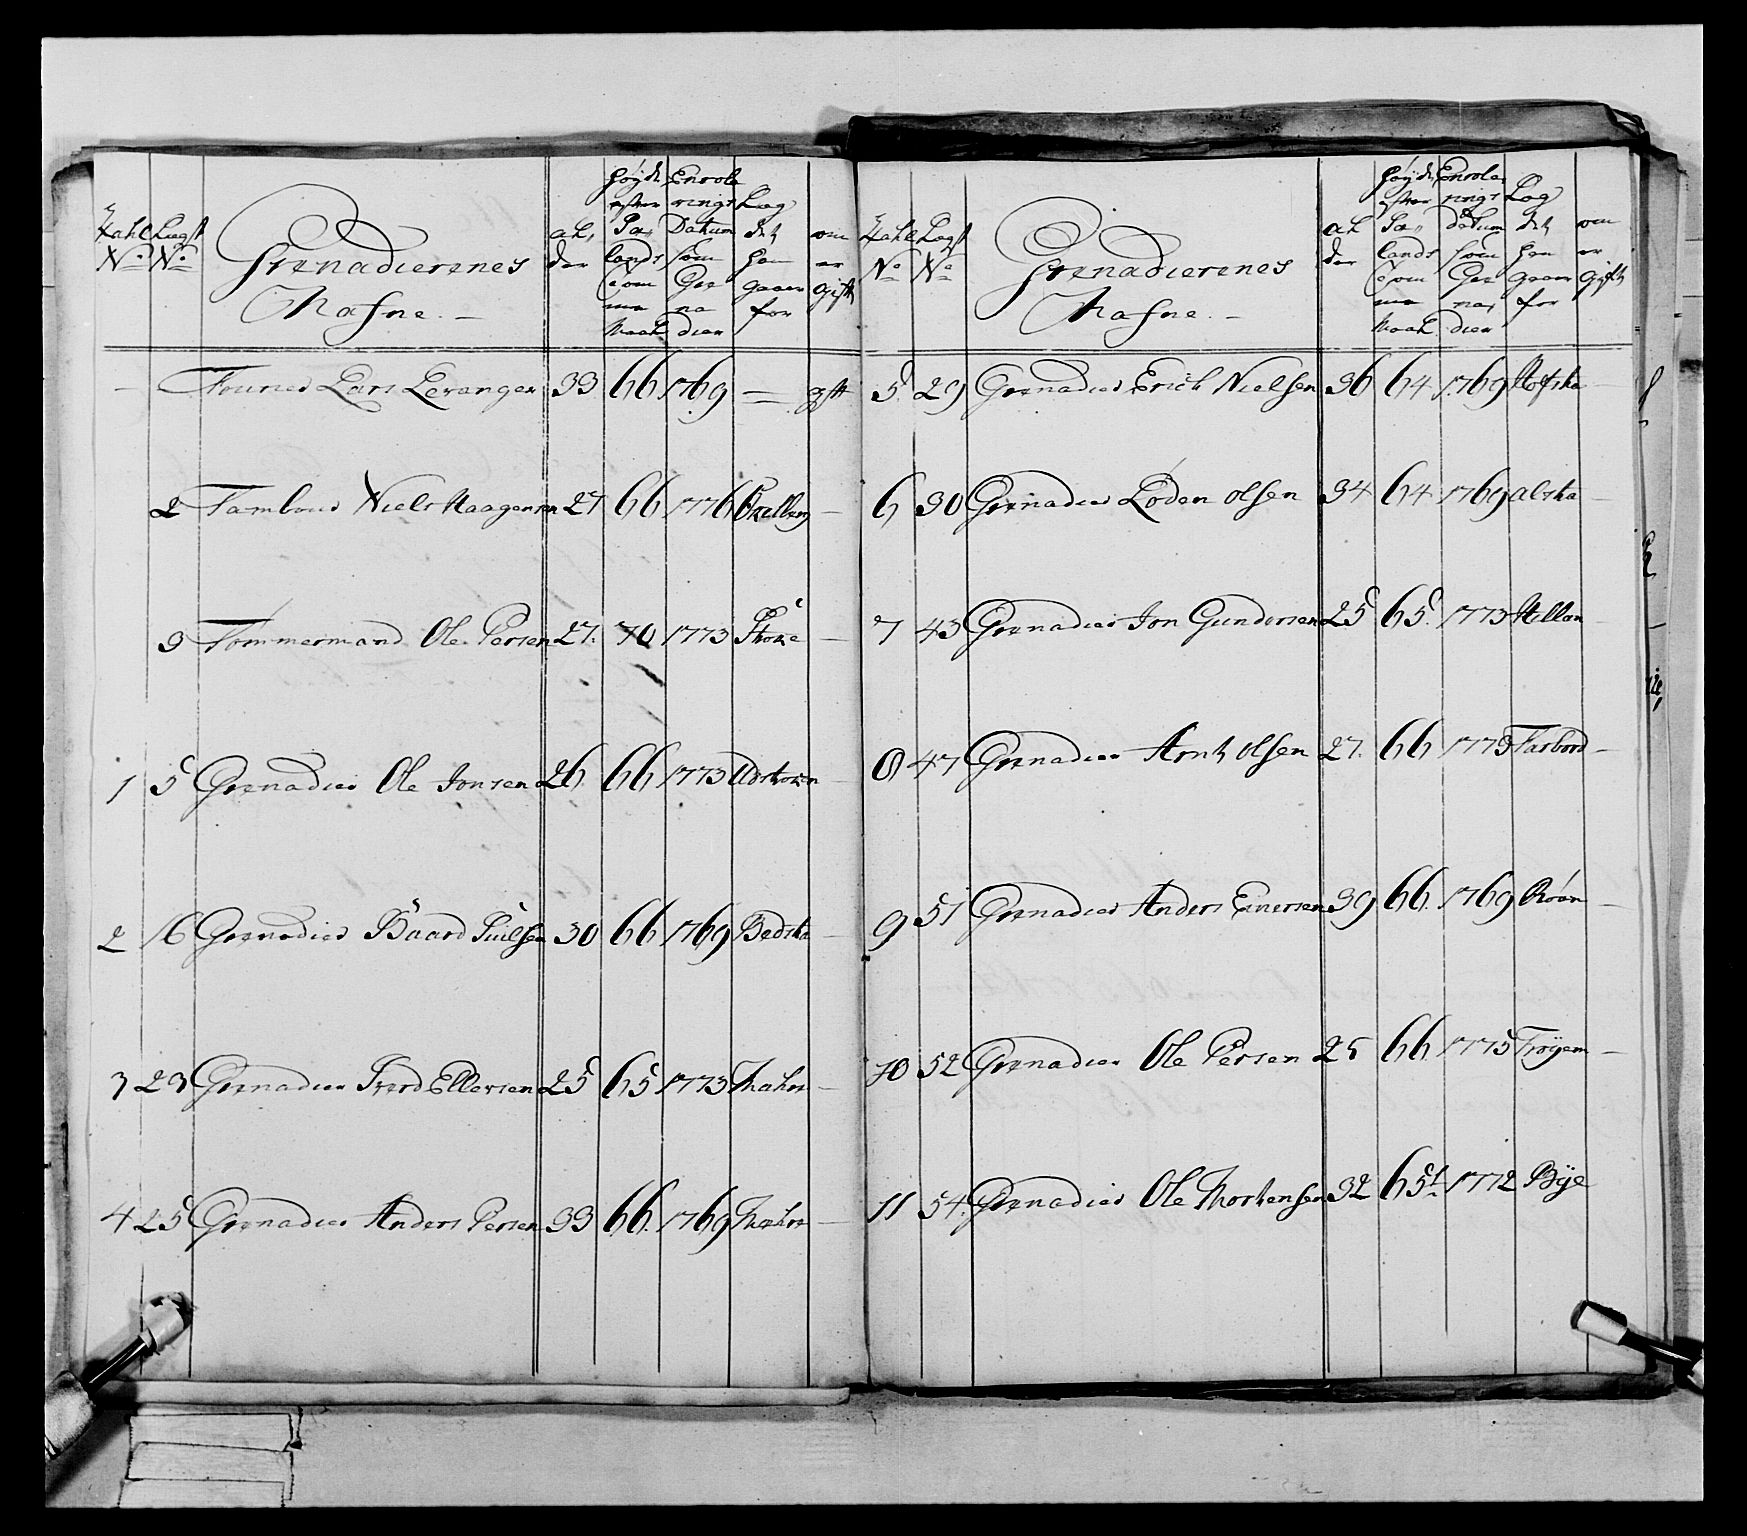 Zahl N.o
Lægst N.o
Grenadierenes Nafne. –
al, der
Høyde efter Sælands Comme Maal
Enrolerings Datum som Grenadier
Læg det han gaaer for
om er gift
– Fourier Lars Levanger 33 66 1769 = gift
2 Tambour Niels Haagensen 27 66 1776 –
3 Tømmermand Ole Persen 27. 70 1773 –
1 5 Grenadier Ole Jonsen 26. 66 1773 –
2 16 Grenadier Baard 30 66 1769 –
3 23 Grenadier Ellersen 25 65 1773 –
4 25 Grenadier Anders Persen 33 66. 1769 –
Zahl N.o
Lægst N.o
Grenadierenes Nafne. –
al der
Høyde efter Sælands Comme Maal
Enrolerings datum som Grenadier
Læg det han gaaer for
om er gift
5. 29 Grenadier Erich Nielsen 36 64 1769 –
6 30 Grenadier Loden Olsen 34 64 1769 –
7 43 Grenadier Jon Gundersen 25 65. 1773 –
8 47 Grenadier Arnt Olsen 27. 66 1773 –
9 51 Grenadier Anders Einersen 39 66. 1769 –
10 52 Grenadier Ole Persen 25 66 1775 Trøyem –
11 54. Grenadier Ole Mortensen 32 65½ 1772 Bÿe